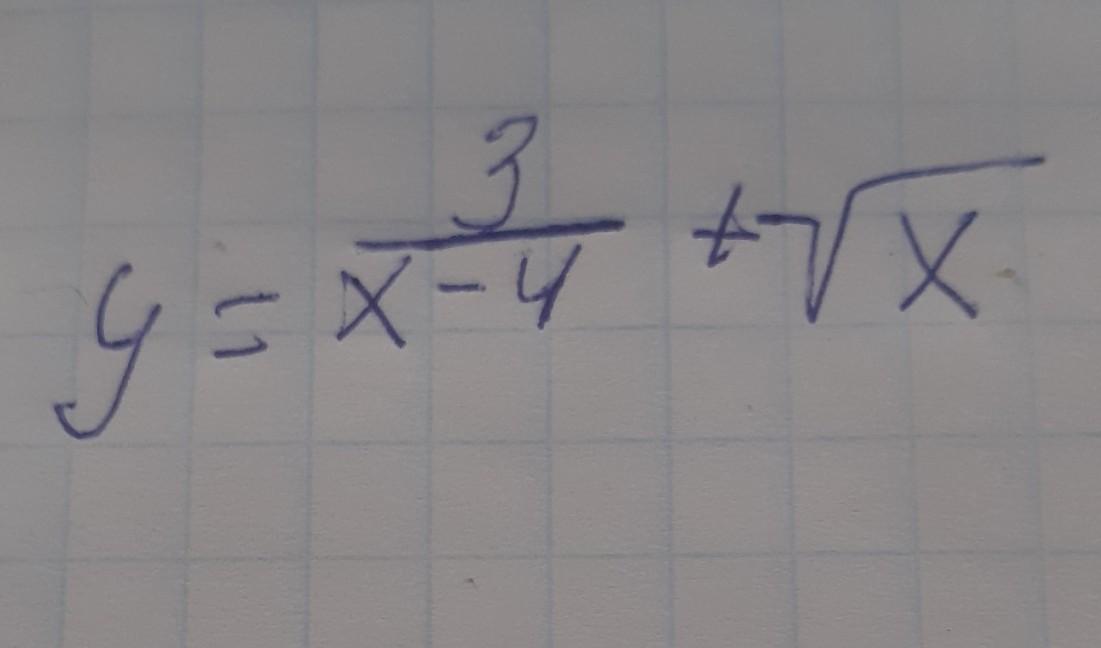 y = \frac{3}{x-4} + \sqrt{x}